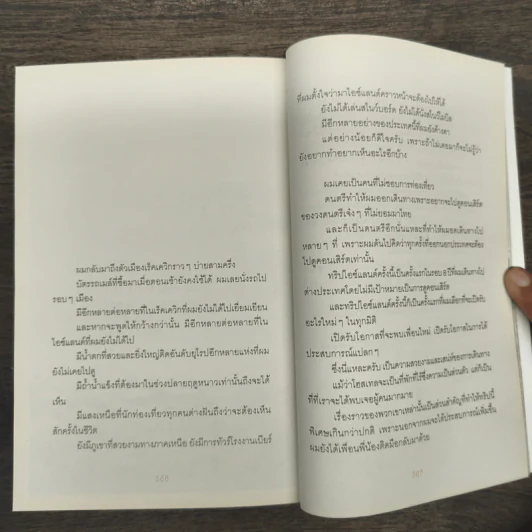 ผมกลับมาถึงตัวเมืองเรคยาวิกราวๆ บ่ายสามครึ่ง
บัตรรถเมล์ที่ซื้อมาเมื่อตอนเช้ายังคงใช้ได้ ผมเลยนั่งรถไป
รอบๆ เมือง
มีอีกหลายต่อหลายที่ในเรคยาวิกที่ผมยังไม่ได้ไปเยี่ยมเยือน
และหากจะพูดให้กว้างกว่านั้น มีอีกหลายต่อหลายที่ใน
ไอซ์แลนด์ที่ผมยังไม่ได้ไป
มีน้ำตกที่สวยและยิ่งใหญ่ติดอันดับยุโรปอีกหลายแห่งที่ผม
ยังไม่เคยไปดู
มีถ้ำน้ำแข็งที่ต้องมาในช่วงปลายฤดูหนาวเท่านั้นถึงจะได้
เห็น
มีแสงเหนือที่นักท่องเที่ยวทุกคนต่างฝันถึงว่าจะต้องเห็น
สักครั้งในชีวิต
ยังมีภูเขาที่สวยงามทางภาคเหนือ ยังมีการทัวร์โรงงานเบียร์
ที่ผมตั้งใจว่ามาไอซ์แลนด์คราวหน้าจะต้องไปให้ได้
ยังไม่ได้เล่นสโนว์บอร์ด ยังไม่ได้
มีอีกหลายอย่างของประเทศนี้ที่ผมยังค้างคา
แต่อย่างน้อยก็ดีใจครับ เพราะถ้าไม่เคยมาก็จะไม่รู้ว่า
ยังอยากทำอยากเห็นอะไรอีกบ้าง
ผมเคยเป็นคนที่ไม่ชอบการท่องเที่ยว
ดนตรีทำให้ผมออกเดินทางเพราะอยากจะไปดูคอนเสิร์ต
ของวงดนตรีเจ๋งๆ ที่ไม่ยอมมาไทย
และก็เป็นดนตรีอีกนั่นแหละที่ทำให้ผมอดเดินทางไป
หลายๆ ที่ เพราะผมดันไปคิดว่าทุกครั้งที่ออกนอกประเทศจะต้อง
ไปดูคอนเสิร์ตเท่านั้น
ทริปไอซ์แลนด์ครั้งนี้เป็นครั้งแรกในรอบ ปีที่ผมเดินทางไป
ต่างประเทศโดยไม่มีเป้าหมายเป็นการดูคอนเสิร์ต
และทริปไอซ์แลนด์ครั้งนี้ก็เป็นครั้งแรกที่ผมเลือกที่จะเปิดรับ
อะไรใหม่ๆ ในทุกมิติ
เปิดรับโอกาสที่จะพบเพื่อนใหม่ เปิดรับโอกาสในการได้
ประสบการณ์แปลกๆ
ซึ่งนี่แหละครับ เป็นความสวยงามและเสน่ห์ของการเดินทาง
แม้ว่าโฮสเทลจะเป็นที่พักที่ไร้ซึ่งความเป็นส่วนตัว แต่ก็เป็น
ที่ที่เราจะได้พบเจอผู้คนมากมาย
เรื่องราวของพวกเขาเหล่านั้นเป็นส่วนสำคัญที่ทำให้ทริปนี้
พิเศษเกินกว่าปกติ เพราะนอกจากผมจะได้ประสบการณ์เพิ่มขึ้น
ผมยังได้เพื่อนพี่น้องติดมือกลับมาด้วย